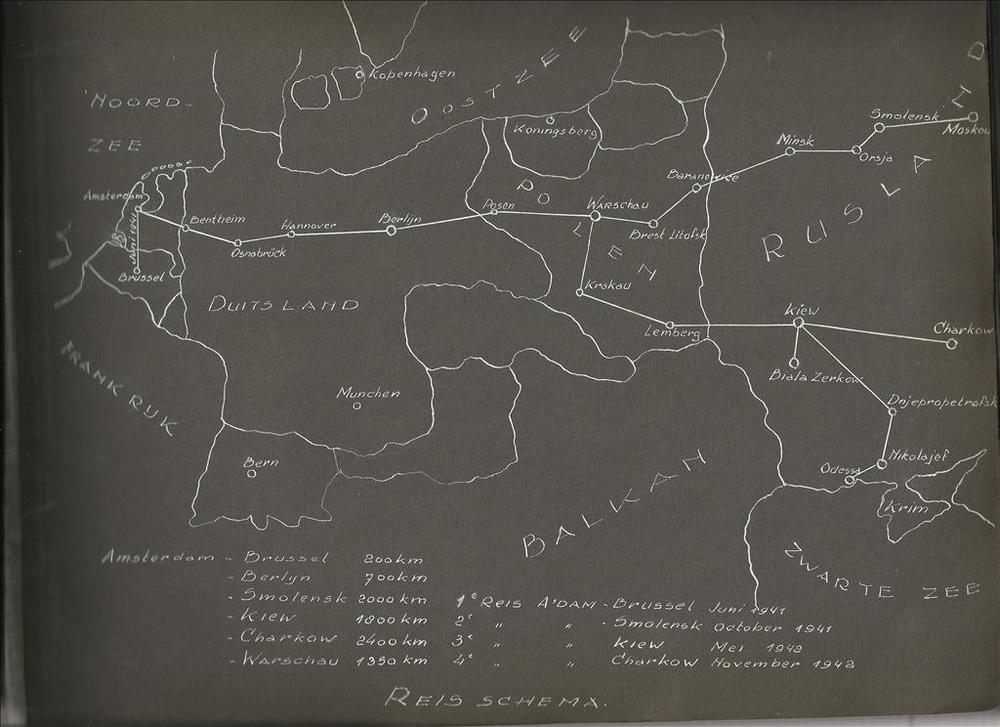 Kopenhagen
OOSTZEE
'NOORD-
ZEE
Koningsberg
Smolensk
Moskou
Minsk
Orsja
RUSLAND
Baranowice
Amsterdam
Bentheim
Hannover
Berlijn
Posen
POLEN
WARSCHAU
Brest Litofsk
Osnabrück
Brussel
Krakau
DUITSLAND
Lemberg
Kiew
Charkow
FRANKRIJK
Biala Zerkow
Munchen
Dnjepropetrofsk
Bern
Odessa
Nikolajef
Krim
BALKAN
ZWARTE ZEE
Amsterdam - Brussel 200 km
- Berlijn 700 km
- Smolensk 2000 km 1e REIS A'DAM - Brussel Juni 1941
- Kiew 1800 km 2e " " - Smolensk October 1941
- Charkow 2400 km 3e " " Kiew Mei 1942
- Warschau 1350 km 4e " " Charkow November 1942
REIS SCHEMA.